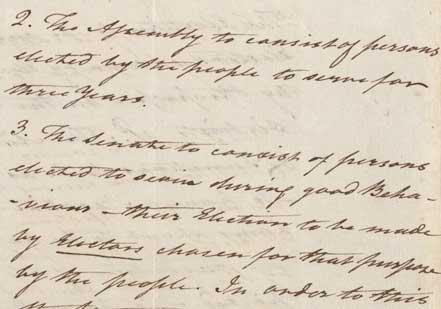 2. The Assembly to consist of persons
elected by the people to serve for
three Years.
3. The Senate to consist of persons
elected to serve during good Beha-
-viour - their Election to be made
by Electors chosen for that purpose
by the people. In order to this